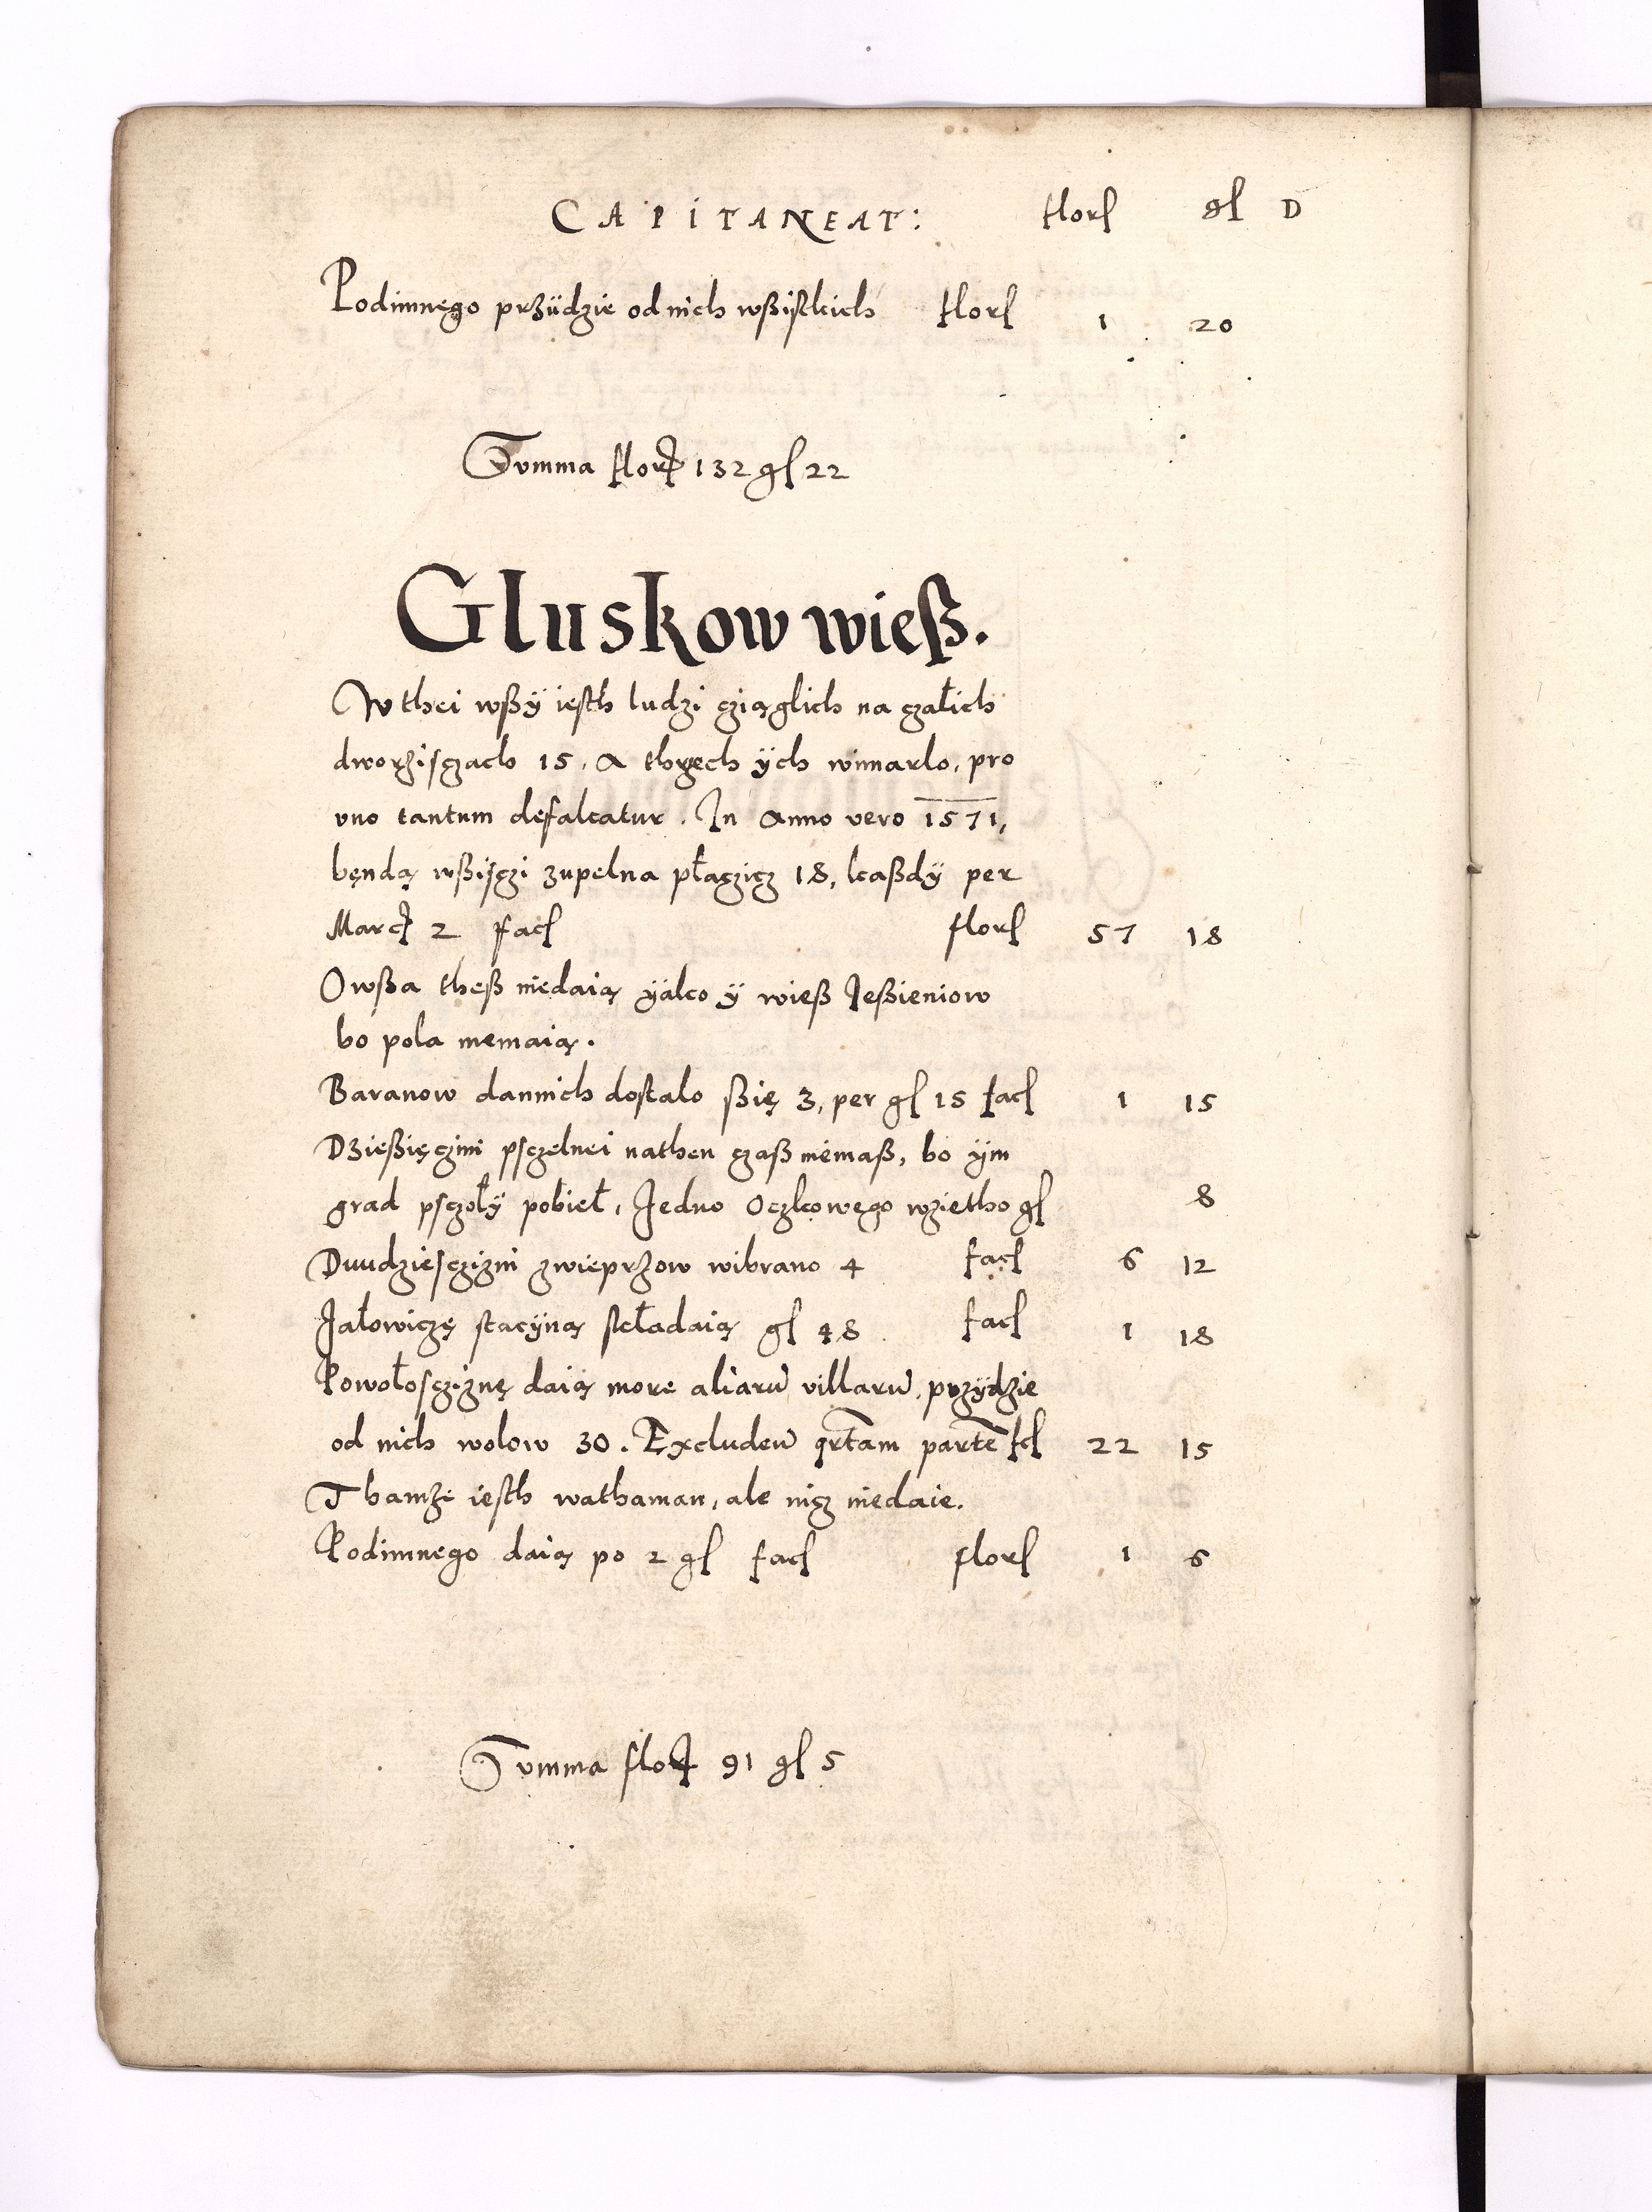 CAPITANEAT: florſ gſ D
Podimnego przÿdzie od nich wßiſtkich florſ 1 20
Summa flor 132 gſ 22
Gluskow wieß.
W thei wßÿ ieſth ludzi cziąglich na czałich
dworziſczach 15, a thrzech ÿch wimarlo, pro
vno tantum defalcatur. In Anno vero 1571,
bendą wßiſczi zupelna płaczicz 18, kaßdÿ per
Marc 2 facſ florſ 57 18
Owßa theß niedaią ÿako ÿ wieß Jeßieniow
bo pola niemaią.
Baranow dannich doſtalo ßię 3, per gſ 15 facſ 1 15
Dzießięczini pſczelnei nathen czaß niemaß, bo ÿm
grad pſczołÿ pobieł, Jedno oczkowego wzietho gſ 8
Dwudzieſczizni zwieprzow wibrano 4 facſ 6 12
Jałowiczę ſtacÿną ſkładaią gſ 48 facſ 1 18
Powołoſcziznę daią more aliarū villarū, przÿdzie
od nich wolow 30. Excludeū qrtam parte fcſ 22 15
Thamże ieſth wathaman, ale nicz niedaie.
Podimnego daią po 2 gſ facſ florſ 1 6
Summa flor 91 gſ 5